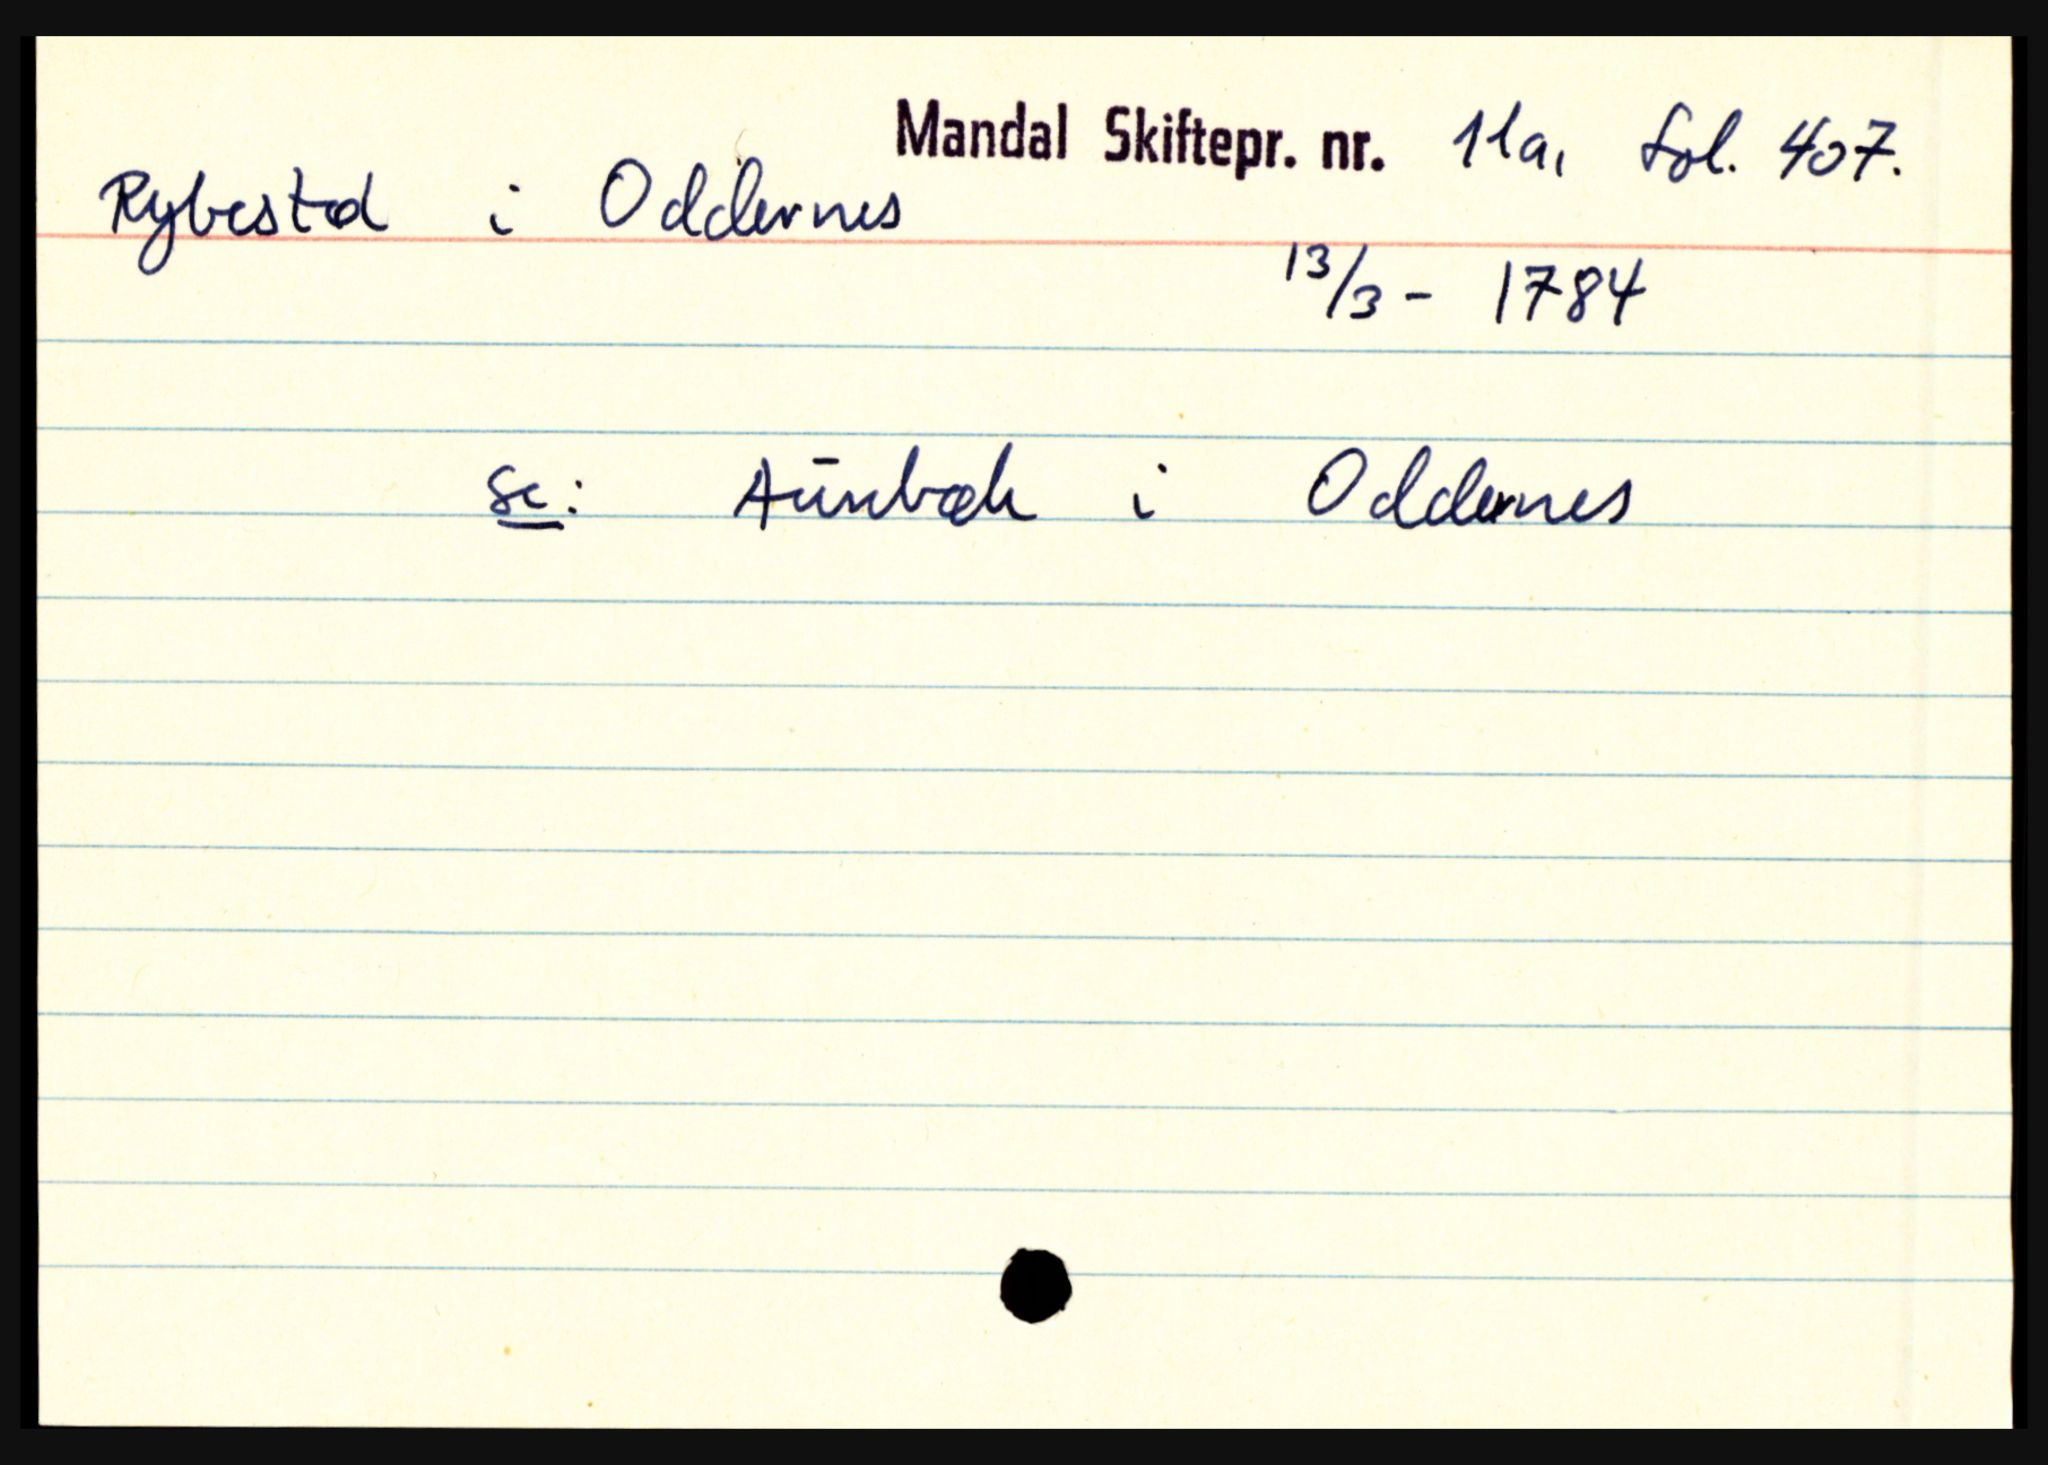 Mandal Skiftepr. nr. 11a, fol. 407.
Rybestad i Oddernes
13/3 - 1784
se: Aūrebæk i Oddernes